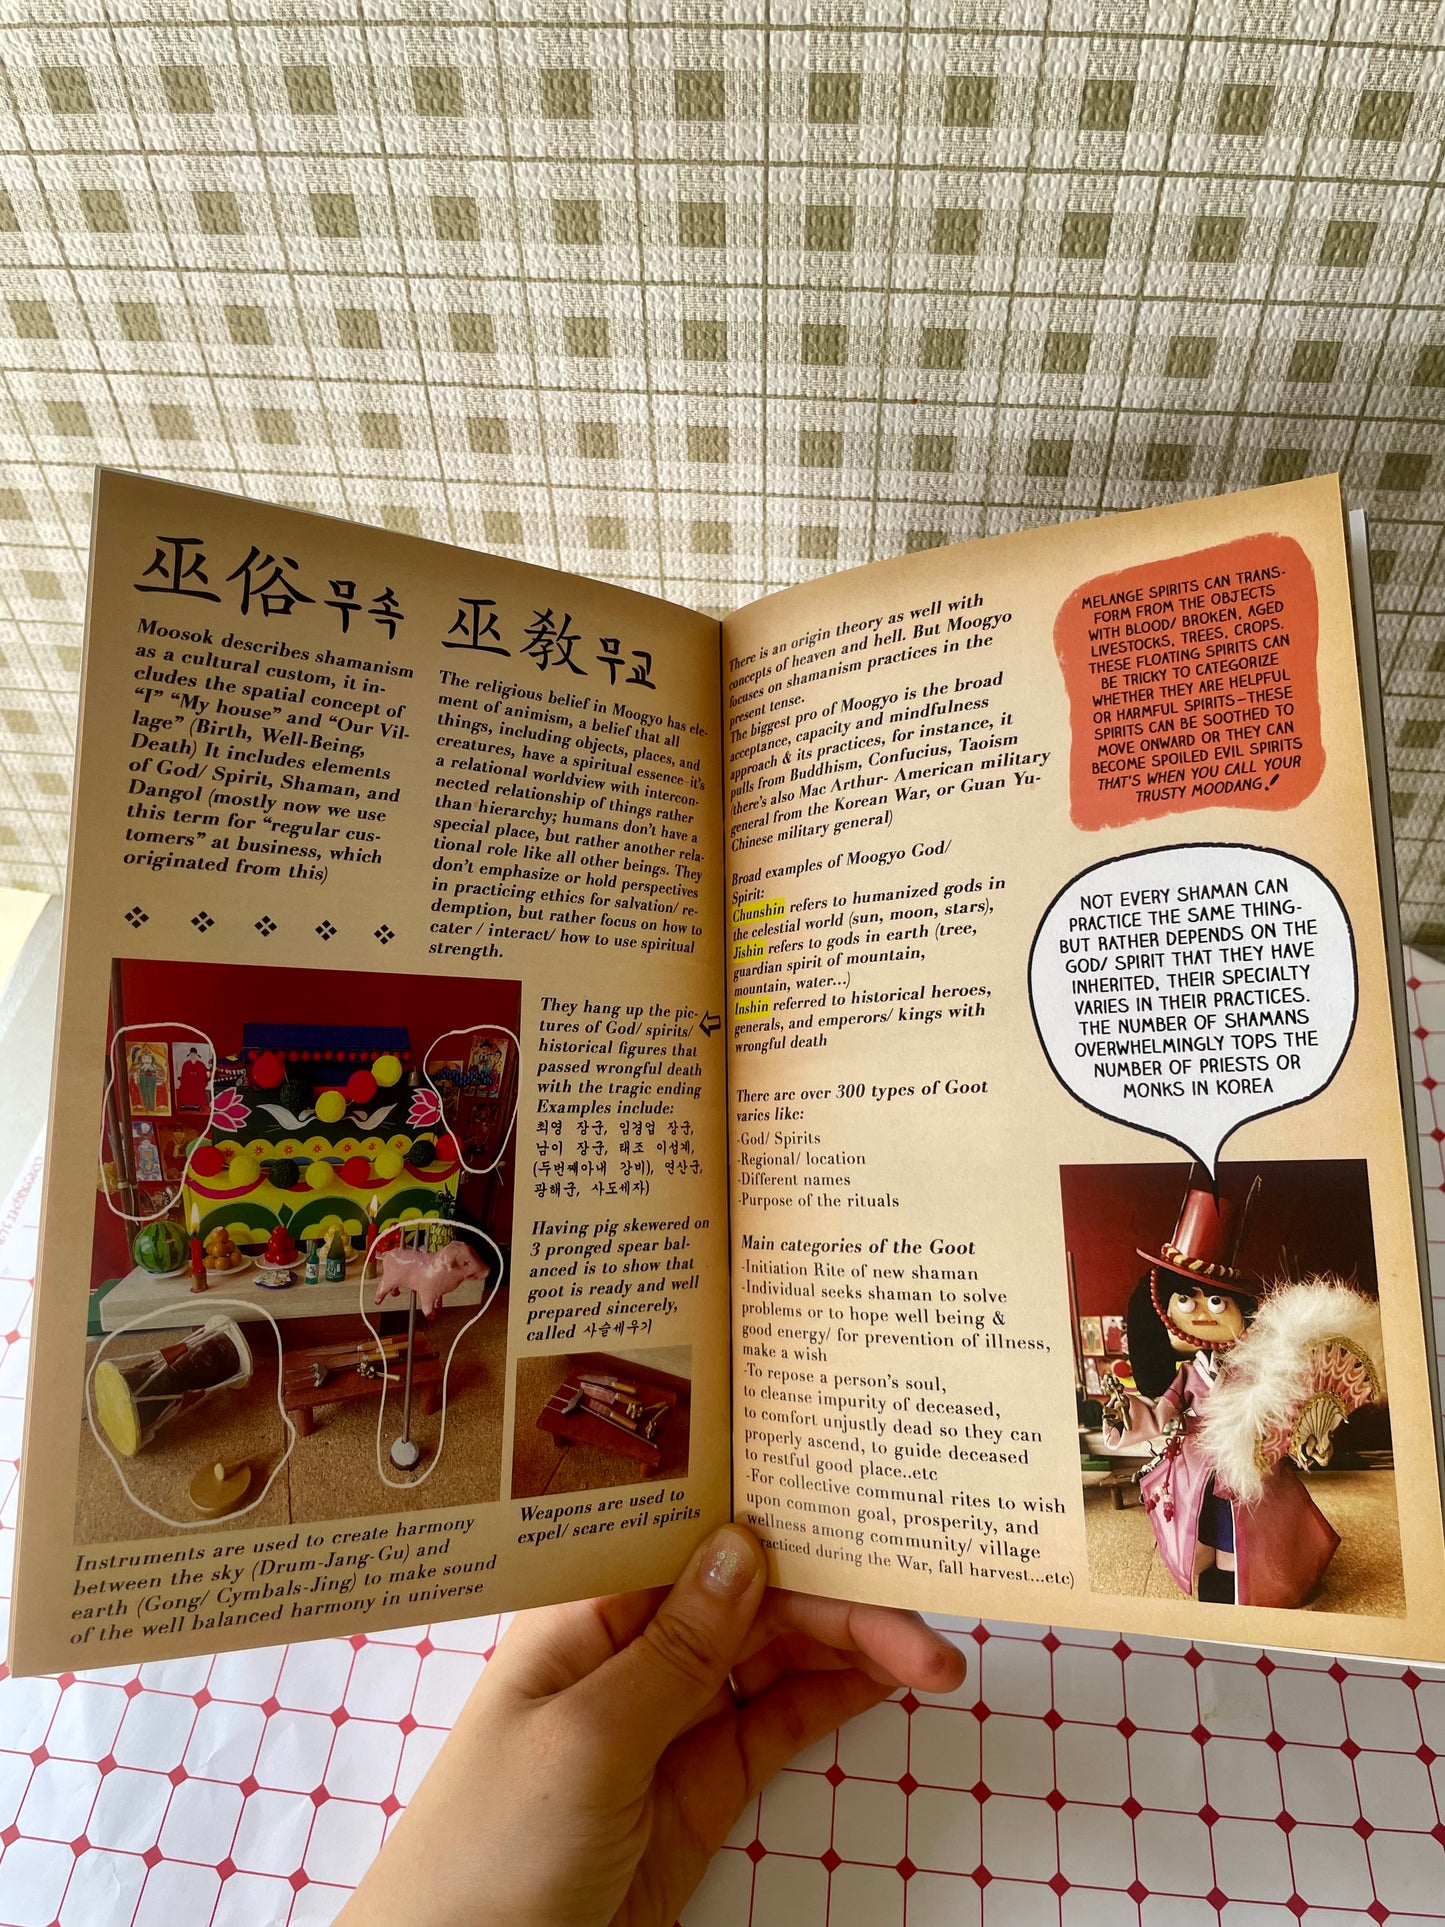 巫俗 무속
Moosok describes shamanism
as a cultural custom, it in-
cludes the spatial concept of
“I” “My house” and “Our Vil-
lage” (Birth, Well-Being,
Death) It includes elements
of God/ Spirit, Shaman, and
Dangol (mostly now we use
this term for “regular cus-
tomers” at business, which
originated from this)
巫敎 무교
The religious belief in Moogyo has ele-
ment of animism, a belief that all
things, including objects, places, and
creatures, have a spiritual essence-it’s
a relational worldview with intercon-
nected relationship of things rather
than hierarchy; humans don’t have a
special place, but rather another rela-
tional role like all other beings. They
don’t emphasize or hold perspectives
in practicing ethics for salvation/ re-
demption, but rather focus on how to
cater / interact/ how to use spiritual
strength.
They hang up the pic-
tures of God/ spirits/
historical figures that
passed wrongful death
with the tragic ending
Examples include:
최영 장군, 임경업 장군,
남이 장군, 태조 이성계,
(두번째아내 강비), 연산군,
광해군, 사도세자)
Having pig skewered on
3 pronged spear bal-
anced is to show that
goot is ready and well
prepared sincerely,
called 사슬세우기
Weapons are used to
expel/ scare evil spirits
Instruments are used to create harmony
between the sky (Drum-Jang-Gu) and
earth (Gong/ Cymbals-Jing) to make sound
of the well balanced harmony in universe
There is an origin theory as well with
concepts of heaven and hell. But Moogyo
focuses on shamanism practices in the
present tense.
The biggest pro of Moogyo is the broad
acceptance, capacity and mindfulness
approach & its practices, for instance, it
pulls from Buddhism, Confucius, Taoism
(there’s also Mac Arthur- American military
general from the Korean War, or Guan Yu-
Chinese military general)
Broad examples of Moogyo God/
Spirit:
Chunshin refers to humanized gods in
the celestial world (sun, moon, stars),
Jishin refers to gods in earth (tree,
guardian spirit of mountain,
mountain, water...)
Inshin referred to historical heroes,
generals, and emperors/ kings with
wrongful death
There are over 300 types of Goot
varies like:
-God/ Spirits
-Regional/ location
-Different names
-Purpose of the rituals
Main categories of the Goot
-Initiation Rite of new shaman
-Individual seeks shaman to solve
problems or to hope well being &
good energy/ for prevention of illness,
make a wish
-To repose a person’s soul,
to cleanse impurity of deceased,
to comfort unjustly dead so they can
properly ascend, to guide deceased
to restful good place..etc
-For collective communal rites to wish
upon common goal, prosperity, and
wellness among community/ village
during the War, fall harvest...etc)
MELANGE SPIRITS CAN TRANS-
FORM FROM THE OBJECTS
WITH BLOOD/ BROKEN, AGED
LIVESTOCKS, TREES, CROPS.
THESE FLOATING SPIRITS CAN
BE TRICKY TO CATEGORIZE
WHETHER THEY ARE HELPFUL
OR HARMFUL SPIRITS-THESE
SPIRITS CAN BE SOOTHED TO
MOVE ONWARD OR THEY CAN
BECOME SPOILED EVIL SPIRITS
THAT’S WHEN YOU CALL YOUR
TRUSTY MOODANG!
NOT EVERY SHAMAN CAN
PRACTICE THE SAME THING-
BUT RATHER DEPENDS ON THE
GOD/ SPIRIT THAT THEY HAVE
INHERITED, THEIR SPECIALTY
VARIES IN THEIR PRACTICES.
THE NUMBER OF SHAMANS
OVERWHELMINGLY TOPS THE
NUMBER OF PRIESTS OR
MONKS IN KOREA